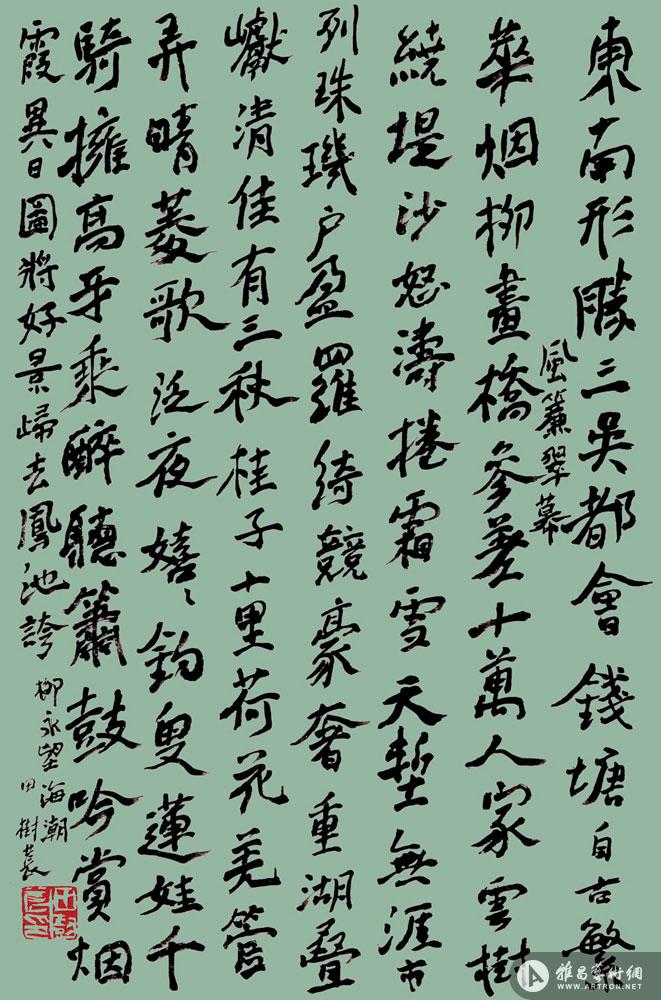 東南形勝三吳都會錢塘自古繁
風簾翠幕
華烟柳畫橋參差十萬人家雲樹
繞堤沙怒濤捲霜雪天塹無涯市
列珠璣户盈羅綺競豪奢重湖疊
巘清佳有三秋桂子十里荷花羌管
弄晴菱歌泛夜嬉〻釣叟蓮娃千
騎擁高牙乘醉聽簫鼓吟賞烟
霞異日圖將好景歸去鳳池誇
柳永望海潮
田樹萇
雅昌藝術網
WWW.ARTRON.NET